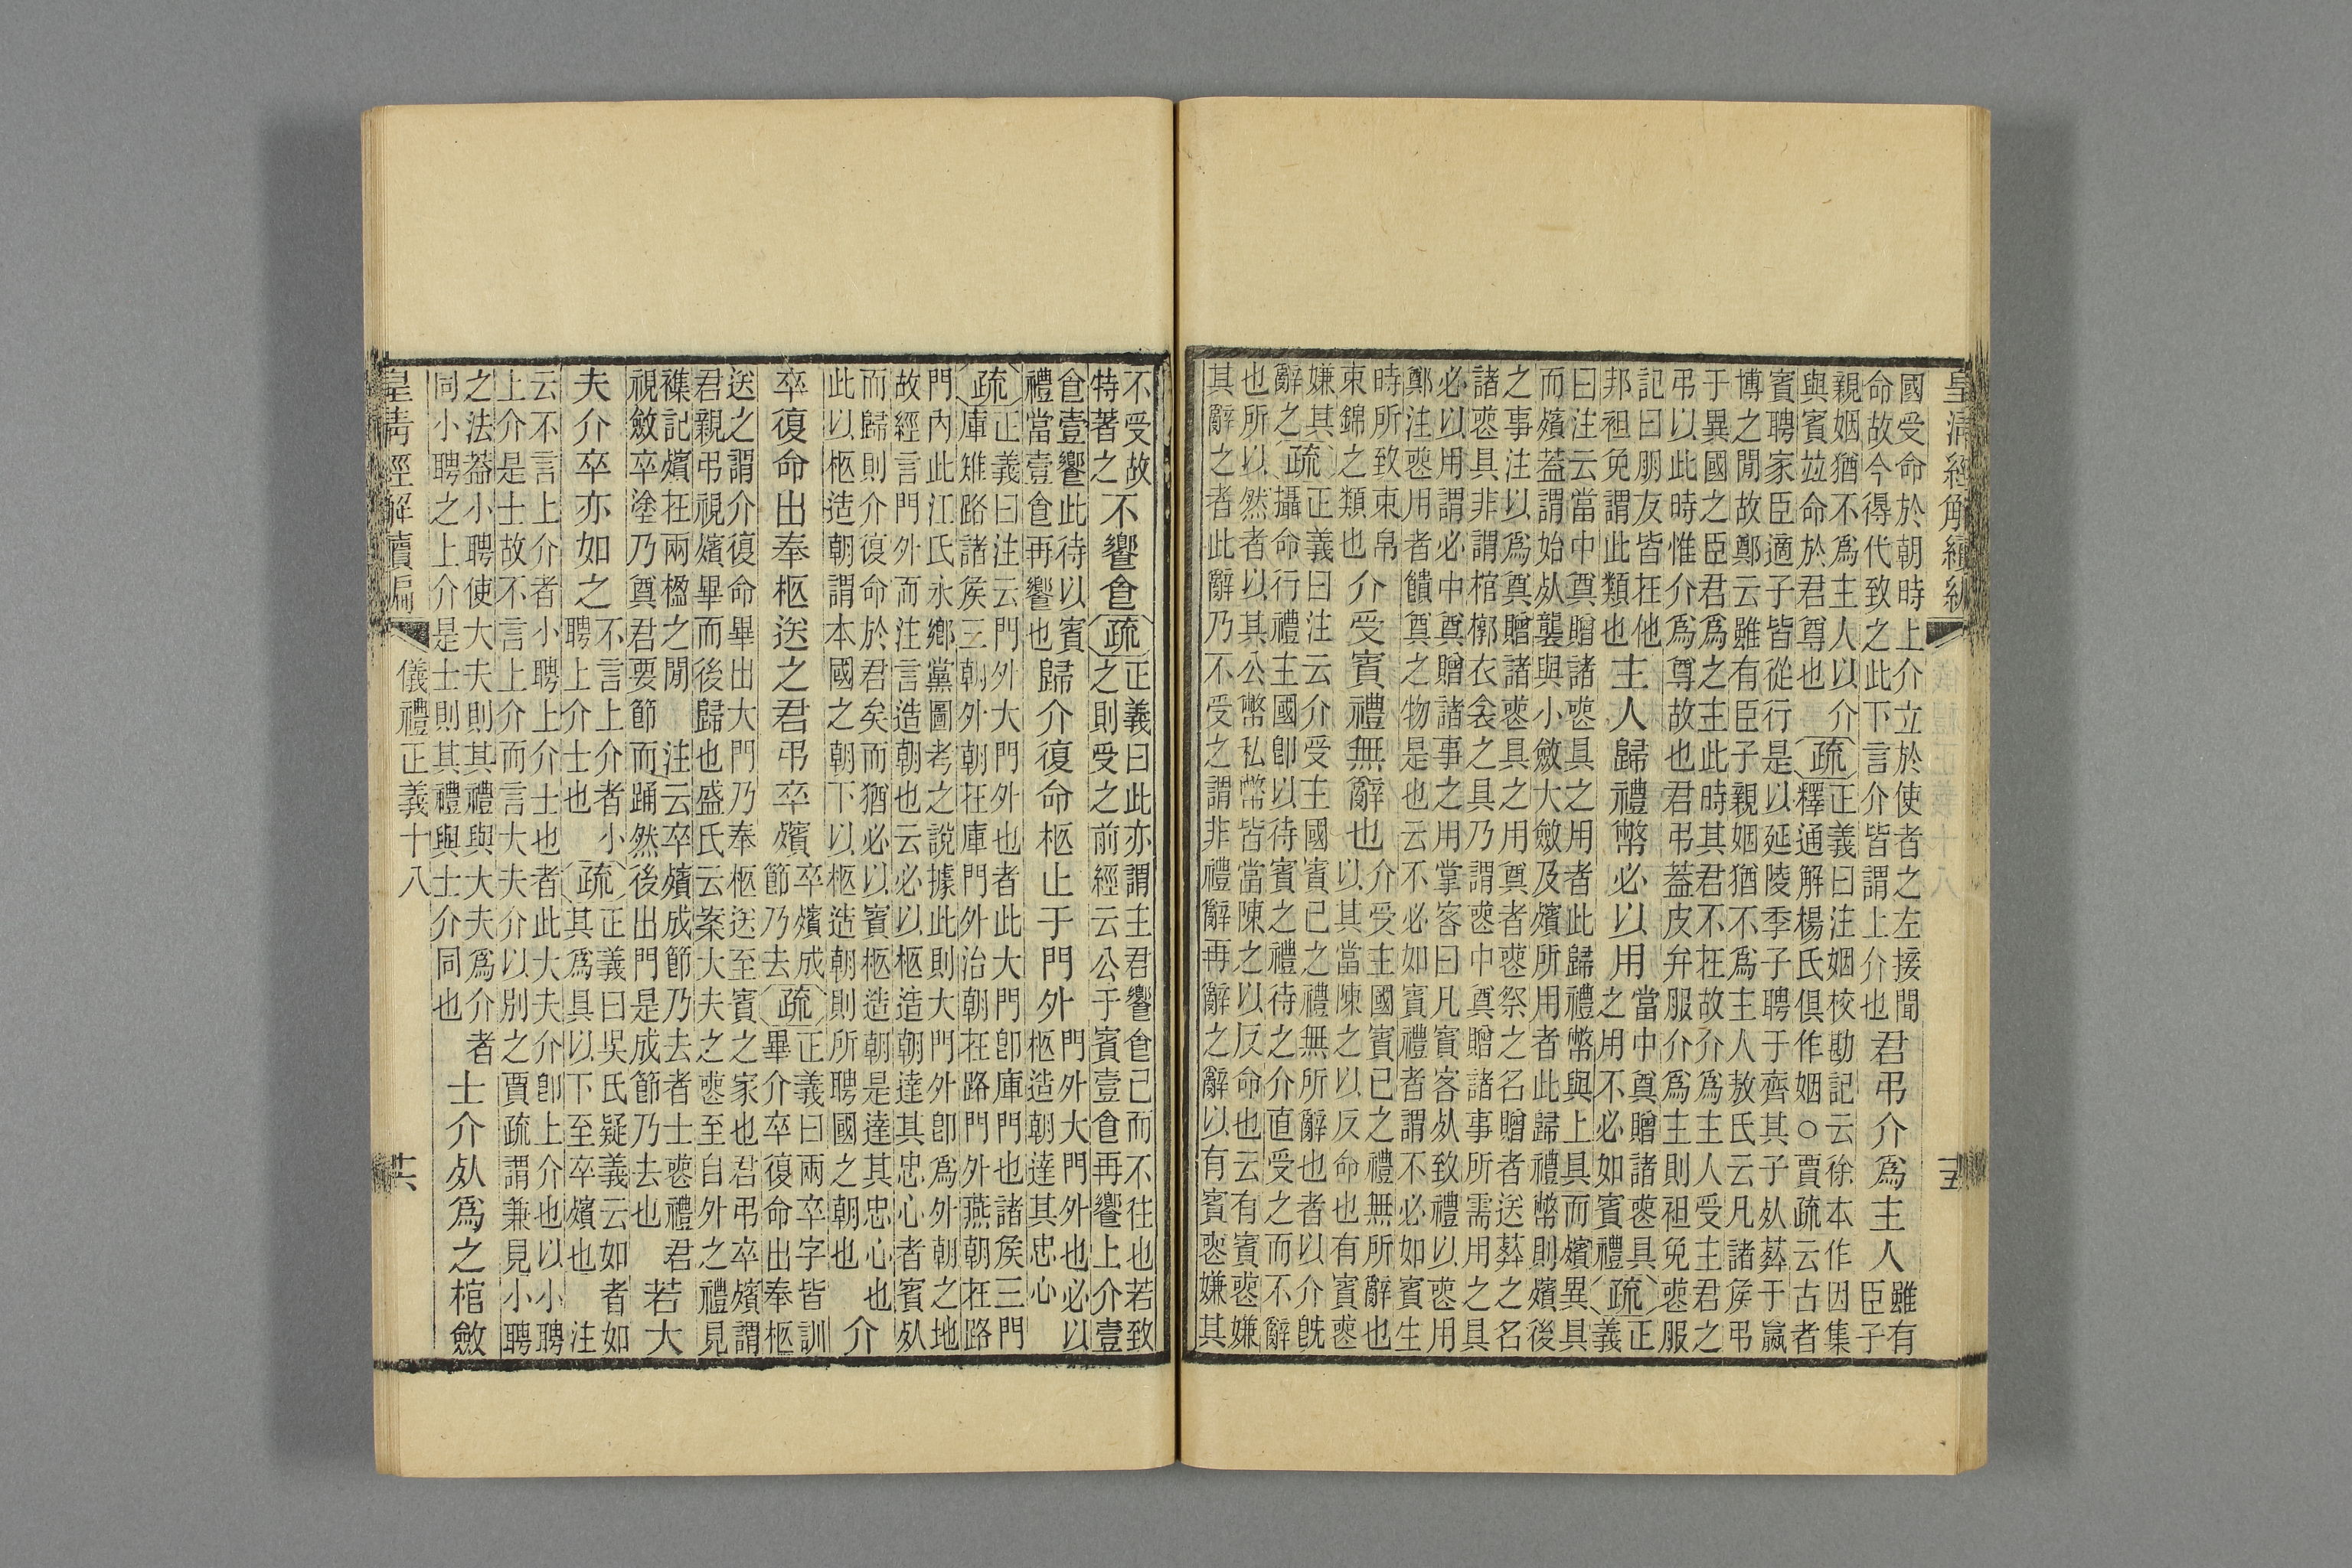 皇清經解續編
五
國受命於朝時上介立於使者之左接聞
命故今得代致之此下言介皆謂上介也
君弔介爲主人
雖有
臣子
親姻猶不爲主人以介
與賓竝命於君尊也
疏
正義曰注姻校勘記云徐本作因集
釋通解楊氏俱作姻○賈疏云古者
賓聘家臣適子皆從行是以延陵季子聘于齊其子死葬于嬴
博之閒故鄭云雖有臣子親姻猶不爲主人敖氏云凡諸侯弔
于異國之臣君爲之主此時其君不在故介爲主人受主君之
弔以此時惟介爲尊故也君弔葢皮弁服介爲主則袒免喪服
記曰朋友皆在他
邦袒免謂此類也
主人歸禮幣必以用
當中奠贈諸喪具
之用不必如賓禮
疏
正
義
曰注云當中奠贈諸喪具之用者此歸禮幣與上具而殯異具
而殯葢謂始死襲與小斂大斂及殯所用者此歸禮幣則殯後
之事注以爲奠贈諸喪具之用奠者喪祭之名贈者送葬之名
諸喪具非謂棺槨衣衾之具乃謂喪中奠贈諸事所需用之具
必以用謂必中奠贈諸事之用掌客曰凡賓客死致禮以喪用
鄭注喪用者饋奠之物是也云不必如賓禮者謂不必如賓生
時所致束帛
束錦之類也
介受賓禮無辭也
介受主國賓己之禮無所辭也
以其當陳之以反命也有賓喪
嫌其
辭之
疏
正義曰注云介受主國賓己之禮無所辭也者以介旣
攝命行禮主國卽以待賓之禮待之介直受之而不辭
也所以然者以其公幣私幣皆當陳之以反命也云有賓喪嫌
其辭之者此辭乃不受之謂非禮辭再辭之辭以有賓喪嫌其
不受故
特著之
不饗食
疏
正義曰此亦謂主君饗食已而不往也若致
之則受之前經云公于賓壹食再饗上介壹
食壹饗此待以賓
禮當壹食再饗也
歸介復命柩止于門外
門外大門外也必以
柩造朝達其忠心
疏
正義曰注云門外大門外也者此大門卽庫門也諸侯三門
庫雉路諸侯三朝外朝在庫門外治朝在路門外燕朝在路
門內此江氏永鄉黨圖考之說據此則大門外卽爲外朝之地
故經言門外而注言造朝也云必以柩造朝達其忠心者賓死
而歸則介復命於君矣而猶必以賓柩造朝是達其忠心也
此以柩造朝謂本國之朝下以柩造朝則所聘國之朝也
介
卒復命出奉柩送之君弔卒殯
卒殯成
節乃去
疏
正義曰兩卒字皆訓
畢介卒復命出奉柩
送之謂介復命畢出大門乃奉柩送至賓之家也君弔卒殯謂
君親弔視殯畢而後歸也盛氏云案大夫之喪至自外之禮見
襍記殯在兩楹之閒 注云卒殯成節乃去者士喪禮君
視斂卒塗乃奠君要節而踊然後出門是成節乃去也
若大
夫介卒亦如之
不言上介者小
聘上介士也
疏
正義曰吳氏疑義云如者如
其爲具以下至卒殯也 注
云不言上介者小聘上介士也者此大夫介卽上介也以小聘
上介是士故不言上介而言大夫介以別之賈疏謂兼見小聘
之法葢小聘使大夫則其禮與大夫爲介者
同小聘之上介是士則其禮與士介同也
士介死爲之棺斂
皇清經解續編
儀禮正義十八
六